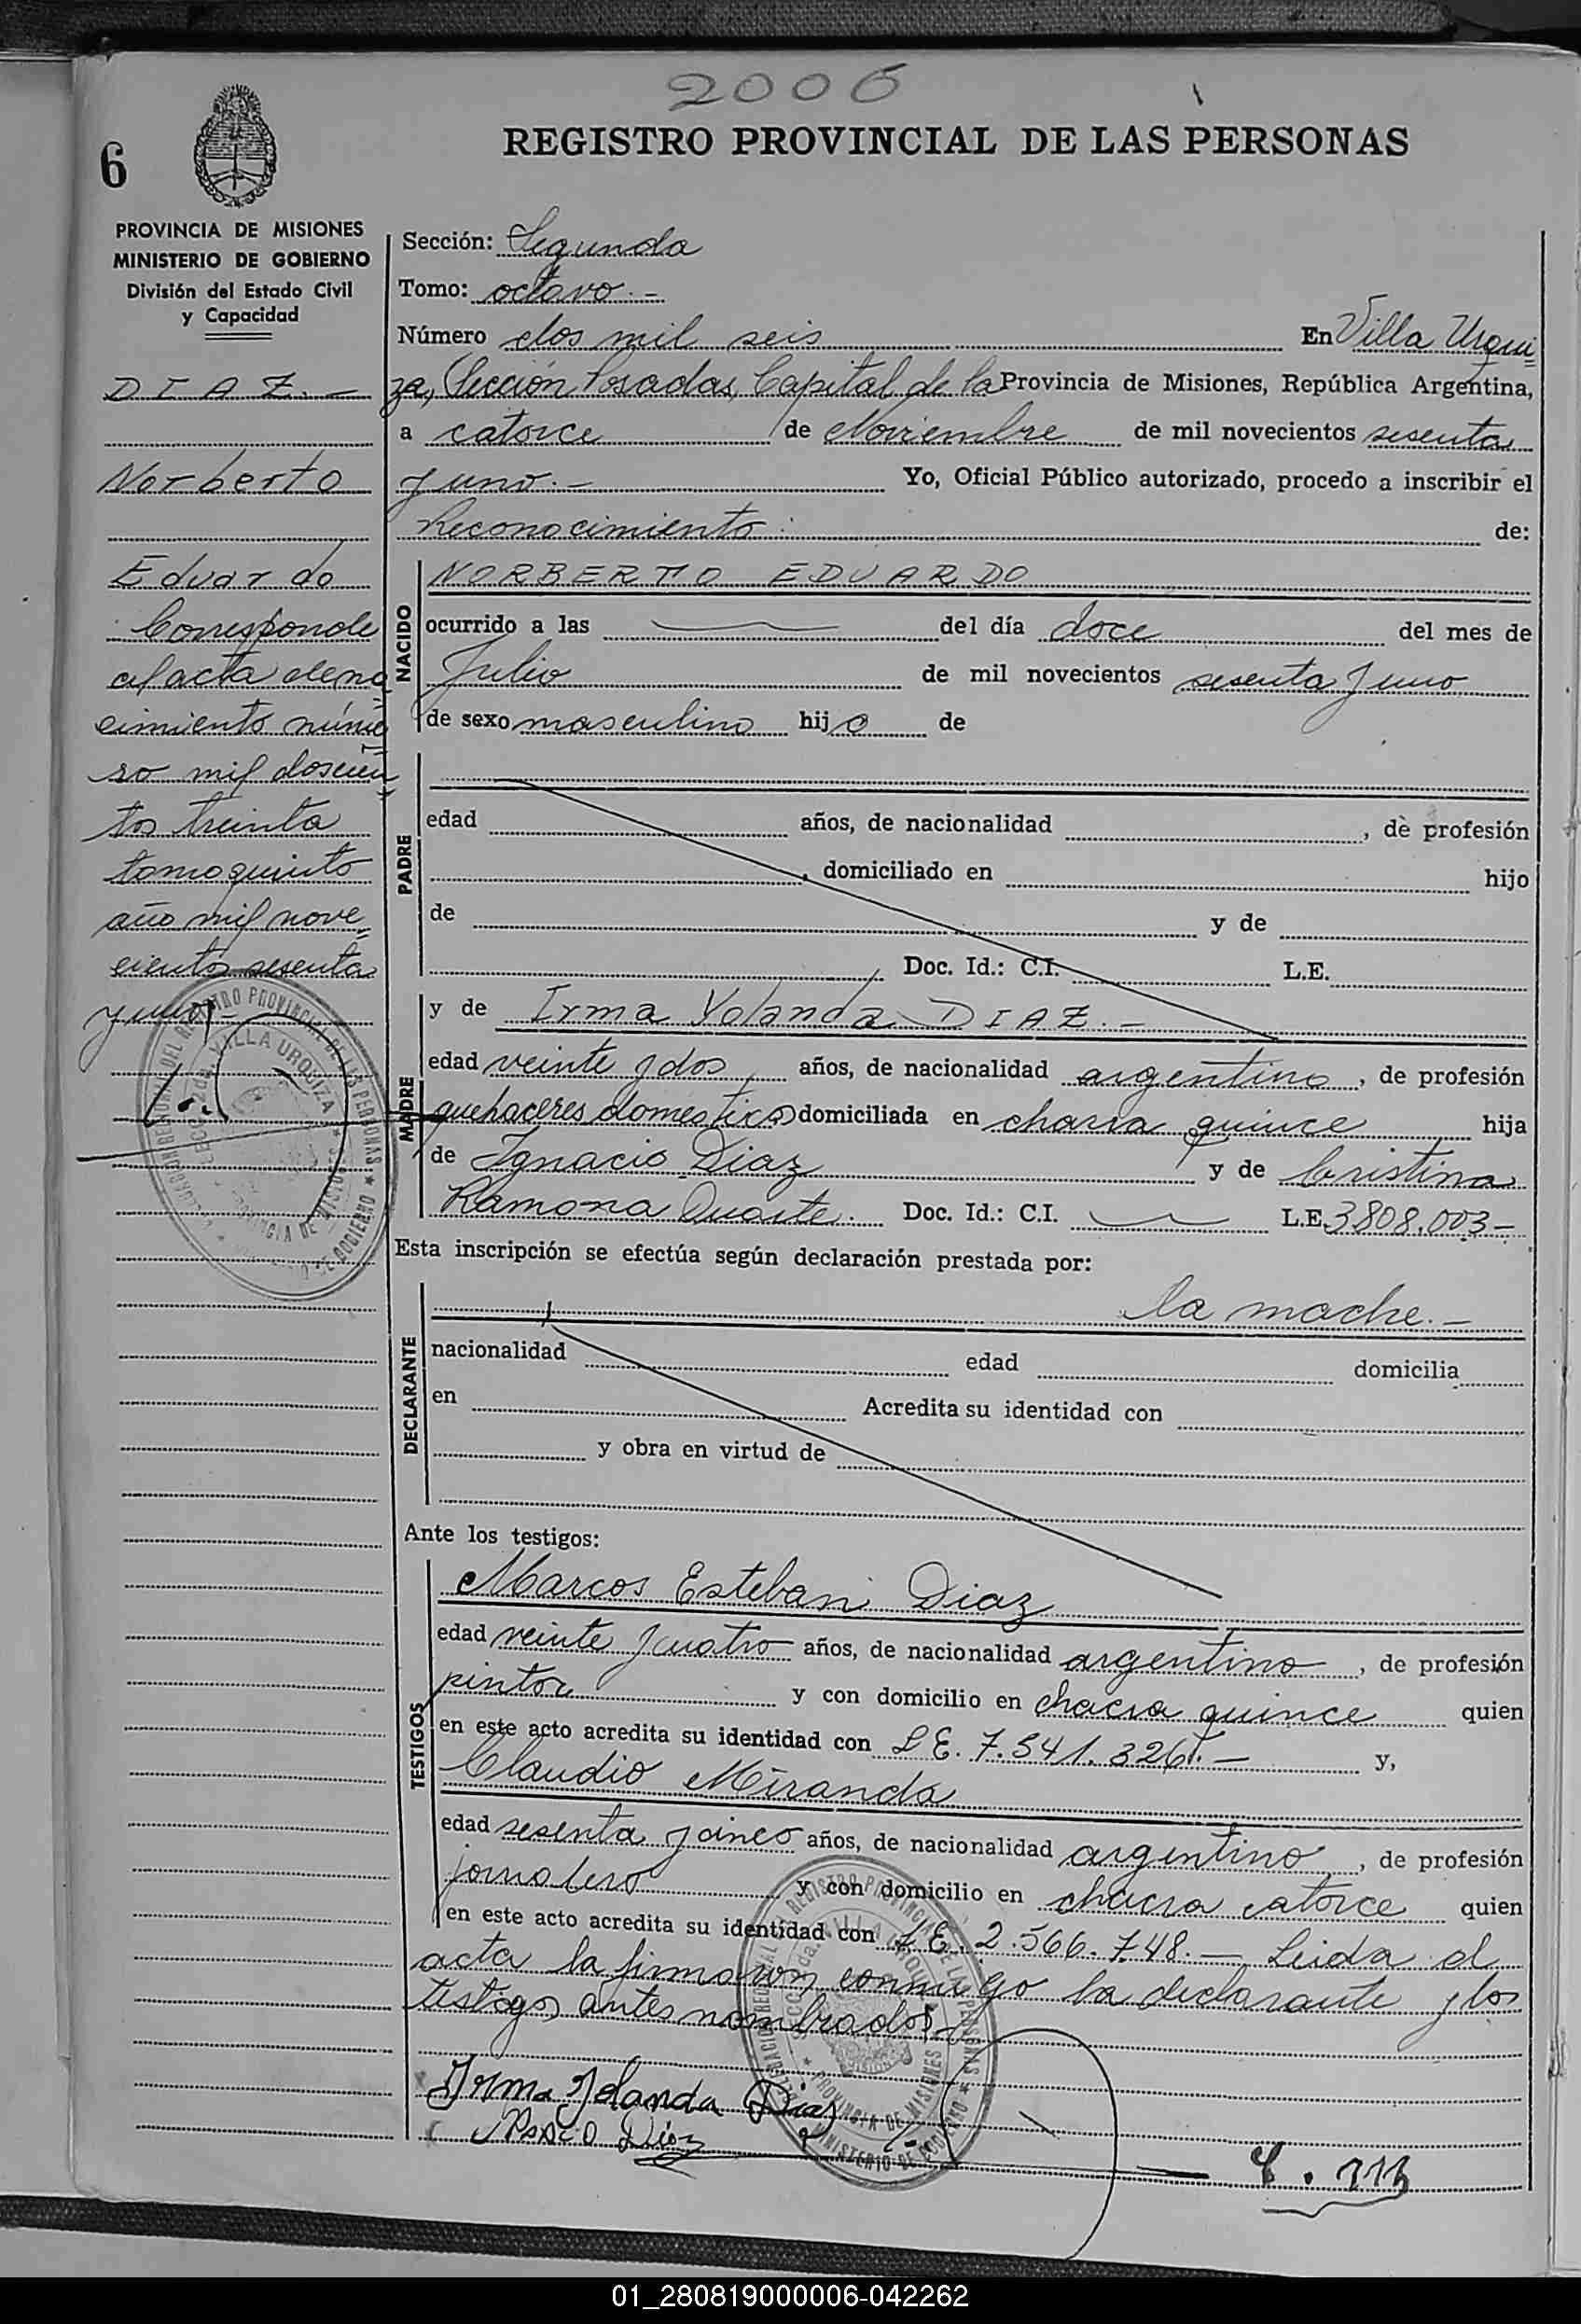 2006
6
REGISTRO PROVINCIAL DE LAS PERSONAS
PROVINCIA DE MISIONES
MINISTERIO DE GOBIERNO
División del Estado Civil
y Capacidad
DIAZ.-
Norberto
Eduardo
Corresponde
al acta de na
cimiento núme
ro mil doscien
tos treinta
tomo quinto
año mil nove
cientos sesenta
y uno.-
Sección: Segunda
Tomo: octavo.-
Número dos mil seis En Villa Urqui
za, Sección Posadas, Capital de la Provincia de Misiones, República Argentina,
a catorce de Noviembre de mil novecientos sesenta
y uno.- Yo, Oficial Público autorizado, procedo a inscribir el
Reconocimiento: de:
NACIDO
NORBERTO EDUARDO
ocurrido a las del día doce del mes de
Julio de mil novecientos sesenta y uno
de sexo masculino hijo de
PADRE
edad años, de nacionalidad , de profesión
, domiciliado en hijo
de y de
Doc. Id.: C.I. L.E.
MADRE
y de Irma Yolanda DIAZ.-
edad veinte y dos años, de nacionalidad argentina, de profesión
quehaceres domesticos domiciliada en chacra quince hija
de Ignacio Diaz y de Cristina
Ramona Duarte. Doc. Id.: C.I. L.E. 3808.003-
Esta inscripción se efectúa según declaración prestada por:
la madre.-
DECLARANTE
nacionalidad edad domicilia
en Acredita su identidad con
y obra en virtud de
Ante los testigos:
TESTIGOS
Marcos Esteban Diaz
edad veinte y cuatro años, de nacionalidad argentino, de profesión
pintor y con domicilio en chacra quince quien
en este acto acredita su identidad con L.E. 7.541.326.- y,
Claudio Miranda
edad sesenta y cinco años, de nacionalidad argentino, de profesión
jornalero y con domicilio en chacra catorce quien
en este acto acredita su identidad con L.E. 2.566.748.- Leida el
acta la firmaron conmigo la declarante y los
testigos antes nombrados.-
Irma Yolanda Diaz
Diaz
VILLA URQUIZA
PROVINCIA DE MISIONES
MINISTERIO DE GOBIERNO
01_280819000006-042262